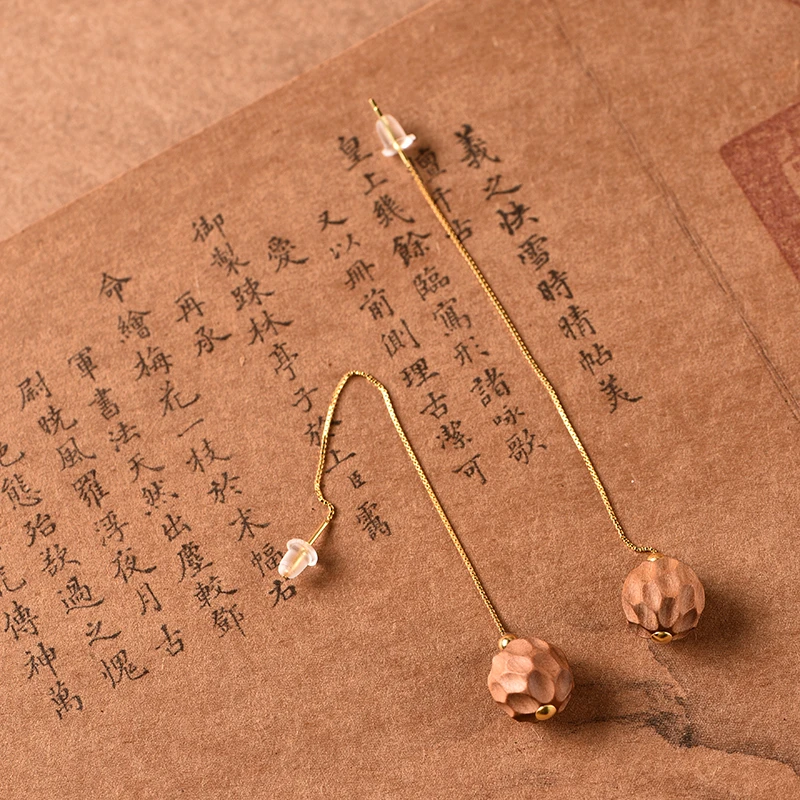 義之快雪時晴帖美
千古
皇上幾餘臨寫形諸詠歌
又以冊前側理古潔可
愛
御製疎林亭子於上臣靄
再承
命繪梅花一枝於末幅右
軍書法天然出塵較鄧
尉曉風羅浮夜月古
色態殆欲過之愧
傳神萬